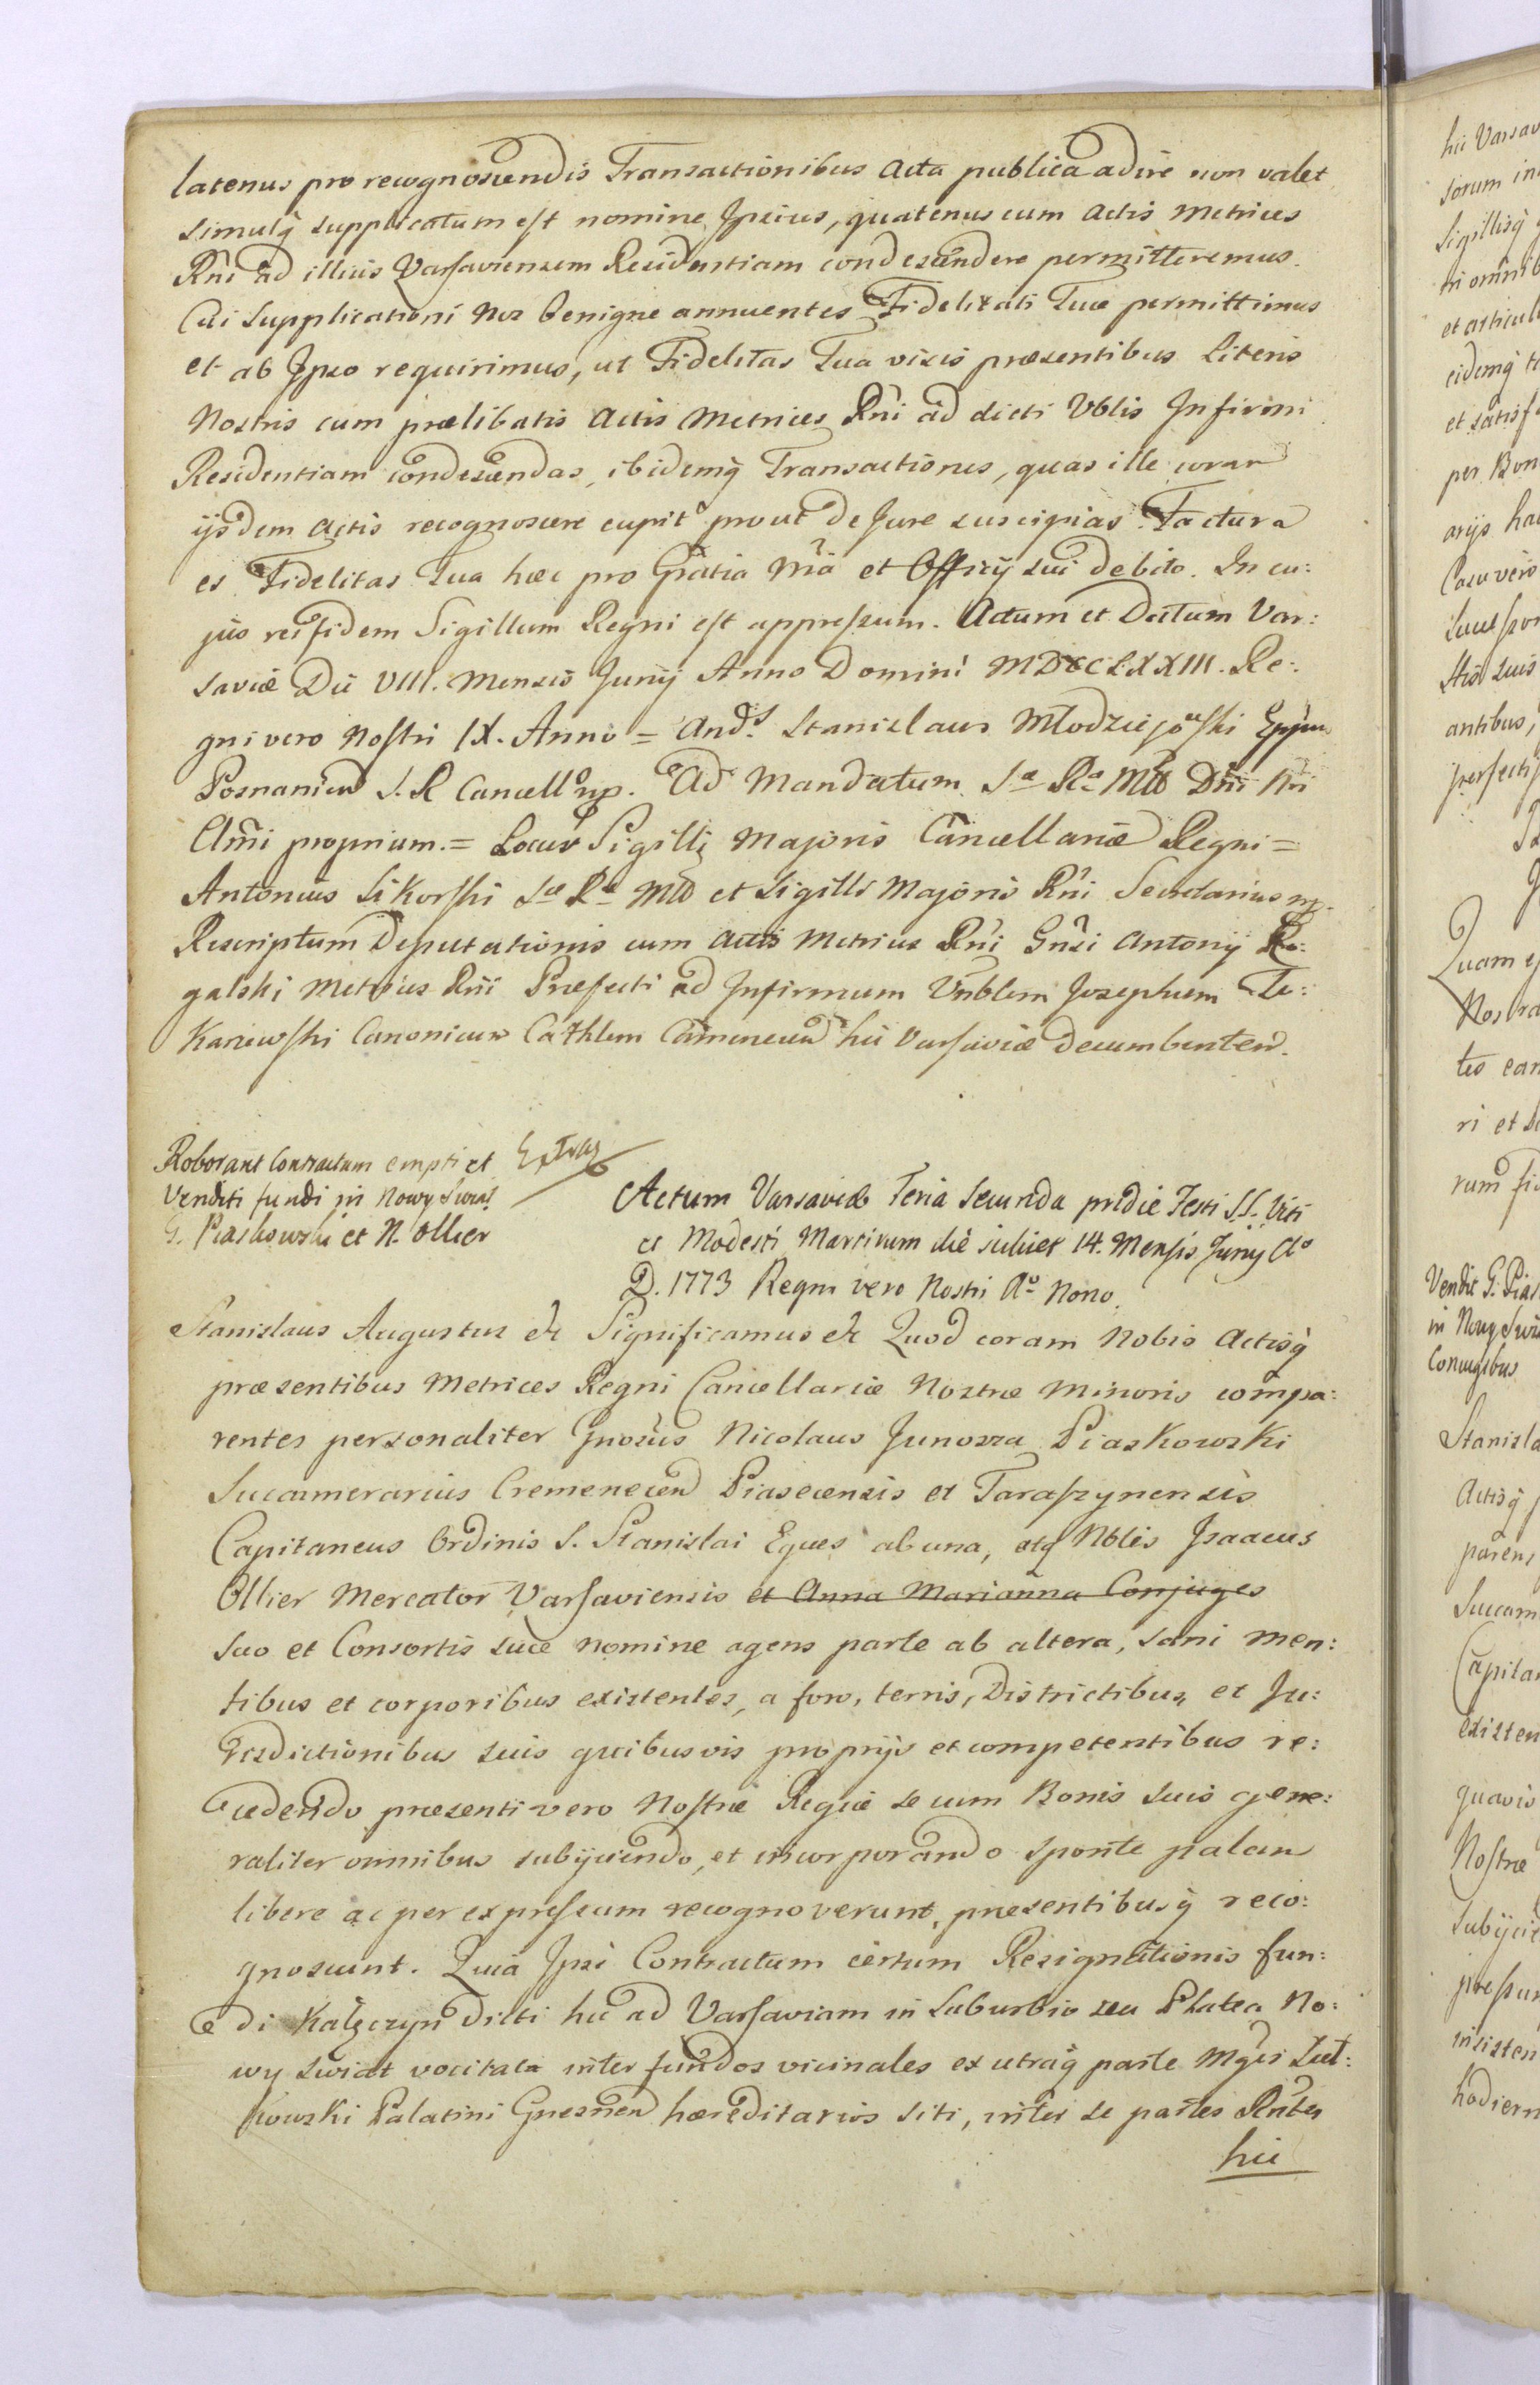 latenus pro recognoscendis Transactionibus Acta publica adire non valet
simulq̀ supplicatum est nomine Ipsius, quatenus cum Actis Metrices
Rñi ad illius Varsaviensem Residentiam condescendere permitteremus.
Cui Supplicationi Nos benigne annuentes Fidelitati Tuæ permittimus
et ab Ipso requirimus, ut Fidelitas Tua visis præsentibus Literis
Nostris cum prælibatis Actis Metrices Rñi ad dicti Vblis Infirmi
Residentiam condescendas, ibidemq̀ Transactiones, quas ille coram
ijsdem Actis recognoscere cupit prout de Jure suscipias. Factura
es Fidelitas Tua hæc pro Gratia Nr̃a et Officij sui debito. In cu:
jus rei fidem Sigillum Regni est appressum. Actum et Datum Var:
saviæ Die VIII. Mensis Junij Anno Domini MDCCLXXIII. Re:
gni vero Nostri IX. Anno = And.s Stanislaus Młodziejoski Eppus
Posnanien S. R Cancell mp. Ad Mandatum S-æ R-æ Mtt Dñi Nri
Clm̃i proprium. = Locus Sigilli Majoris Cancellariæ Regni =
Antonius Sikorski S-æ R-æ Mtt et Sigilli Majoris Rñi Secretarius mp.
Rescriptum Deputationis cum Actis Metrices Rñi Gñsi Antonij Ro:
galski Metrices Rñi Præfecti ad Infirmum Vñblem Josephum Te:
Kaniewski Canonicum Cathlem Camenecen hic Varsaviæ decumbentem.
Roborant Contractum empti et
Venditi fundi in Nowy Swiat
G. Piaskowski et N. Ollier
Extrad
Actum Varsaviæ Feria Secunda pridie Festi S.S. Viti
et Modesti Martirum die scilicet 14. Mensis Junij A°
D. 1773 Regni vero Nostri A° Nono.
Stanislaus Augustus etc Significamus etc Quod coram Nobis Actisq̀
præsentibus Metrices Regni Cancellariæ Nostræ Minoris compa:
rentes personaliter Gnosus Nicolaus Junosza Piaskowski
Succamerarius Cremenecen Piasecensis et Taraszynensis
Capitaneus Ordinis S. Stanislai Eques ab una, atq̀ Nblis Isaacus
Ollier Mercator Varsaviensis et Anna Marianna Conjuges
suo et Consortis suæ nomine agens parte ab altera, sani men:
tibus et corporibus existentes, a foro, terris, Districtibus, et Ju:
risdictionibus suis quibusvis proprijs et competentibus re:
cedendo præsenti vero Nostræ Regiæ se cum Bonis suis gene:
raliter omnibus subijciendo, et incorporando sponte palam
libere ac per expressum recognoverunt, præsentibusq̀ reco:
gnoscunt. Quia Ipsi Contractum certum Resignationis fun:
di Kałęczyn dicti hic ad Varsaviam in Suburbio seu Platea No:
wy Swiat vocitata inter fundos vicinales ex utraq̀ parte Mgci Suł:
kowski Palatini Gnesnen hæreditarios siti, inter se partes Rñtes
hic